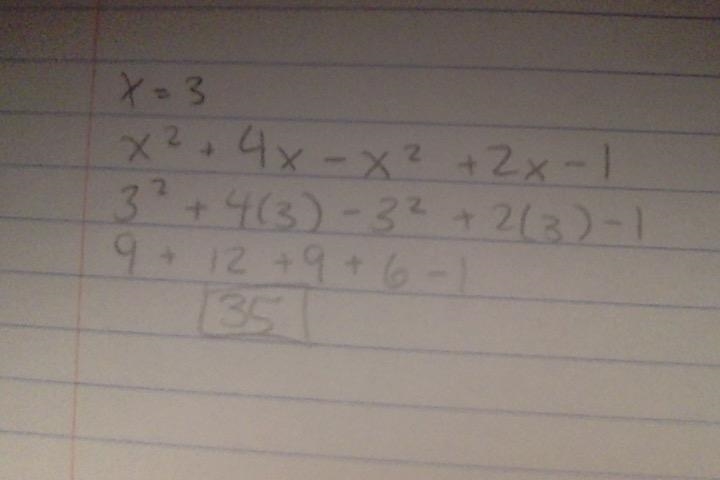 x = 3
x² + 4x - x² + 2x - 1
3² + 4(3) - 3² + 2(3) - 1
9 + 12 + 9 + 6 - 1
35